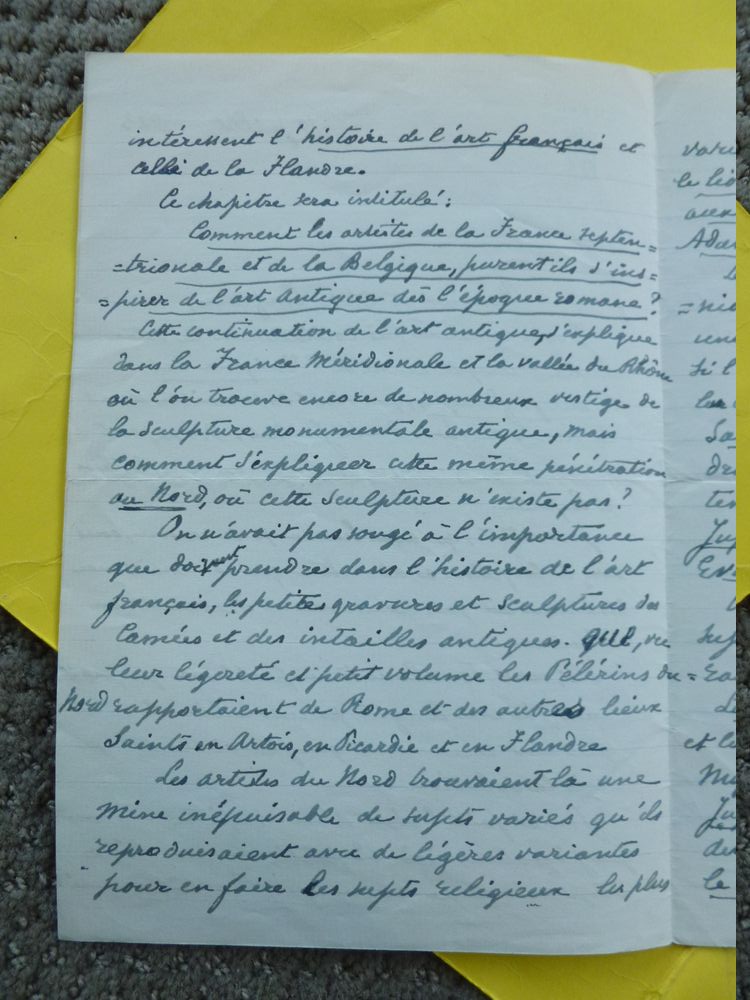 intéressent l'histoire de l'art français et
celle de la Flandre.
Ce chapitre sera intitulé :
Comment les artistes de la France septen=
=trionale et de la Belgique, purent ils s'ins=
=pirer de l'art Antique dès l'époque romane ?
Cette continuation de l'art antique, s'explique
dans la France Méridionale et la vallée du Rhône
où l'on trouve encore de nombreux vestige de
la sculpture monumentale antique, mais
comment s'expliquer cette même pénétration
au Nord, où cette sculpture n'existe pas ?
On n'avait pas songé à l'importance
que doivent prendre dans l'histoire de l'art
français, les petites gravures et sculptures des
Camées et des intailles antiques. que, vu
leur légereté et petit volume les Pélérins du
Nord rapportaient de Rome et des autres lieux
Saints en Artois, en Picardie et en Flandre
Les artistes du Nord trouvaient là une
mine inépuisable de sujets variés qu'ils
reproduisaient avec de légères variantes
pour en faire les sujets religieux les plus